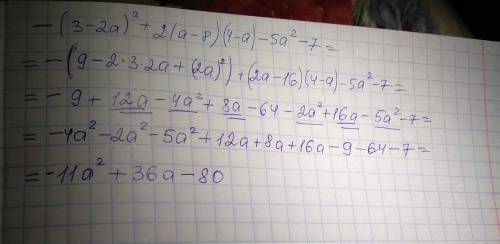 -(3-2a)² + 2(a-8)(4-a)-5a²-7=
=-(9-2·3·2a+(2a)²)+(2a-16)(4-a)-5a²-7=
=-9+12a-4a²+8a-64-2a²+16a-5a²-7=
=-4a²-2a²-5a²+12a+8a+16a-9-64-7=
=-11a²+36a-80